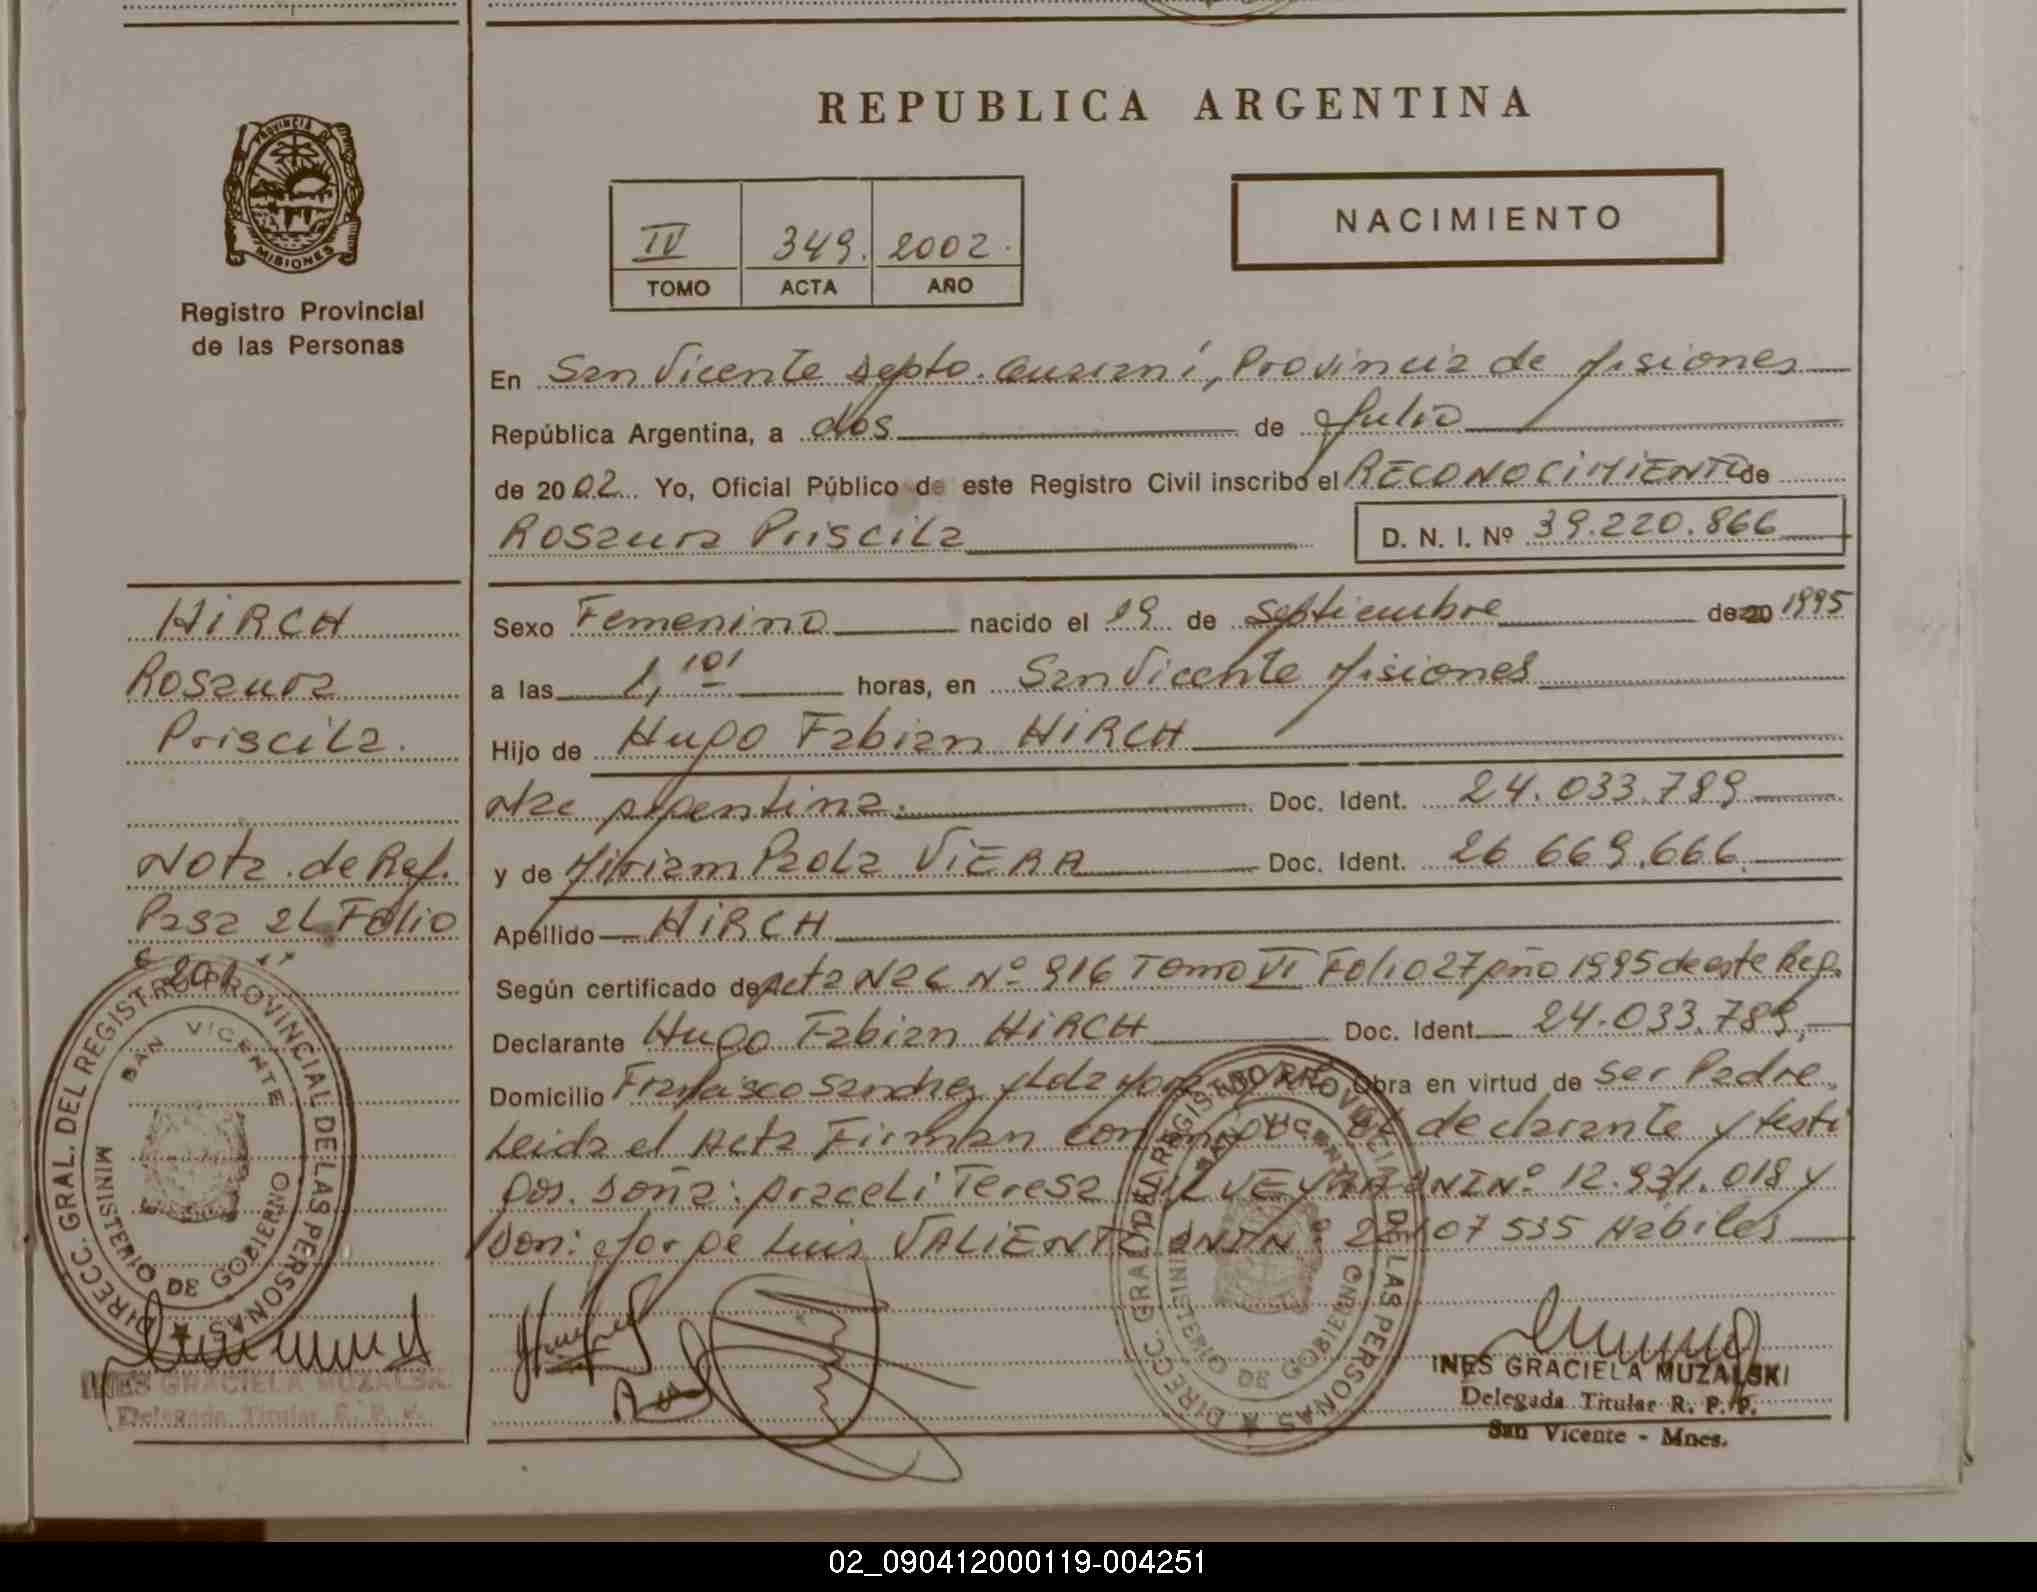 REPUBLICA ARGENTINA
PROVINCIA DE
MISIONES
Registro Provincial
de las Personas
NACIMIENTO
IV 349. 2002.
TOMO ACTA AÑO
En San Vicente depto. Guaraní, Provincia de Misiones
República Argentina, a dos de Julio
de 2002 Yo, Oficial Público de este Registro Civil inscribo el RECONOCIMIENTO de
Rosaura Priscila D. N. I. Nº 39.220.866
HIRCH
Rosaura
Priscila.
Nota de Ref.
Pasa al Folio
201
Sexo Femenino nacido el 19 de Septiembre de 20 1995
a las 1,10 horas, en San Vicente Misiones
Hijo de Hugo Fabian HIRCH
Nac Argentina. Doc. Ident. 24.033.789
y de Miriam Paola VIERA Doc. Ident. 26.669.666
Apellido HIRCH
Según certificado de Acta Nac Nº 916 Tomo VI Folio 27 Año 1995 de este Reg.
Declarante Hugo Fabian HIRCH Doc. Ident. 24.033.789,
Domicilio Francisco Sanchez y Obra en virtud de ser Padre,
Leida el Acta Firman conmigo el declarante y testi
gos. Doña: Araceli Teresa DNI Nº 12.931.018 y
Don: Jorge Luis VALIENTE DNI Nº 07 535 Habiles
DIRECC. GRAL. DEL REGISTRO PROVINCIAL DE LAS PERSONAS
SAN VICENTE
MINISTERIO DE GOBIERNO
INES GRACIELA MUZALSKI
Delegada Titular R. P. P.
DIRECC. GRAL. DEL REGISTRO PROVINCIAL DE LAS PERSONAS
SAN VICENTE
MINISTERIO DE GOBIERNO
INES GRACIELA MUZALSKI
Delegada Titular R. P. P.
San Vicente - Mnes.
02_090412000119-004251